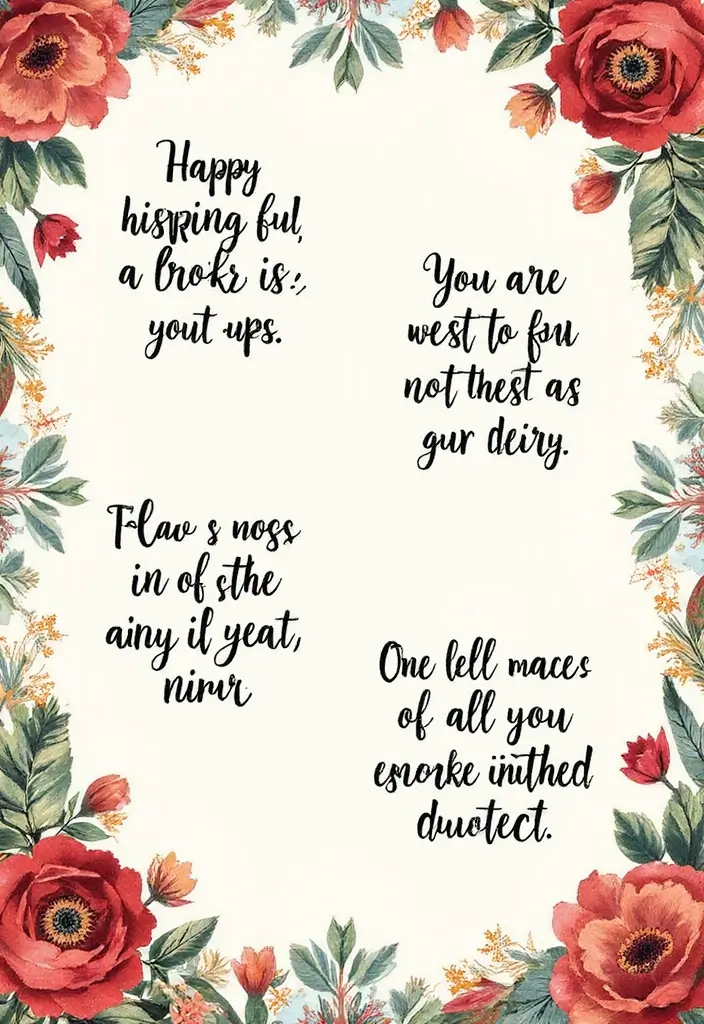 Happy
hisping ful,
a brokr is:,
yout ups.
You are
west to fou
not thest as
gur deiry.
Flav s noss
in of sthe
ainy il yeat,
nirur
One lell maces
of all you
esnorke inithed
duotect.